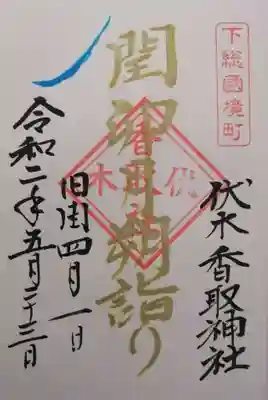 下総國境町
伏木香取神社
閏卯月朔詣り
伏木
香取
旧閏四月一日
令和二年五月二十三日